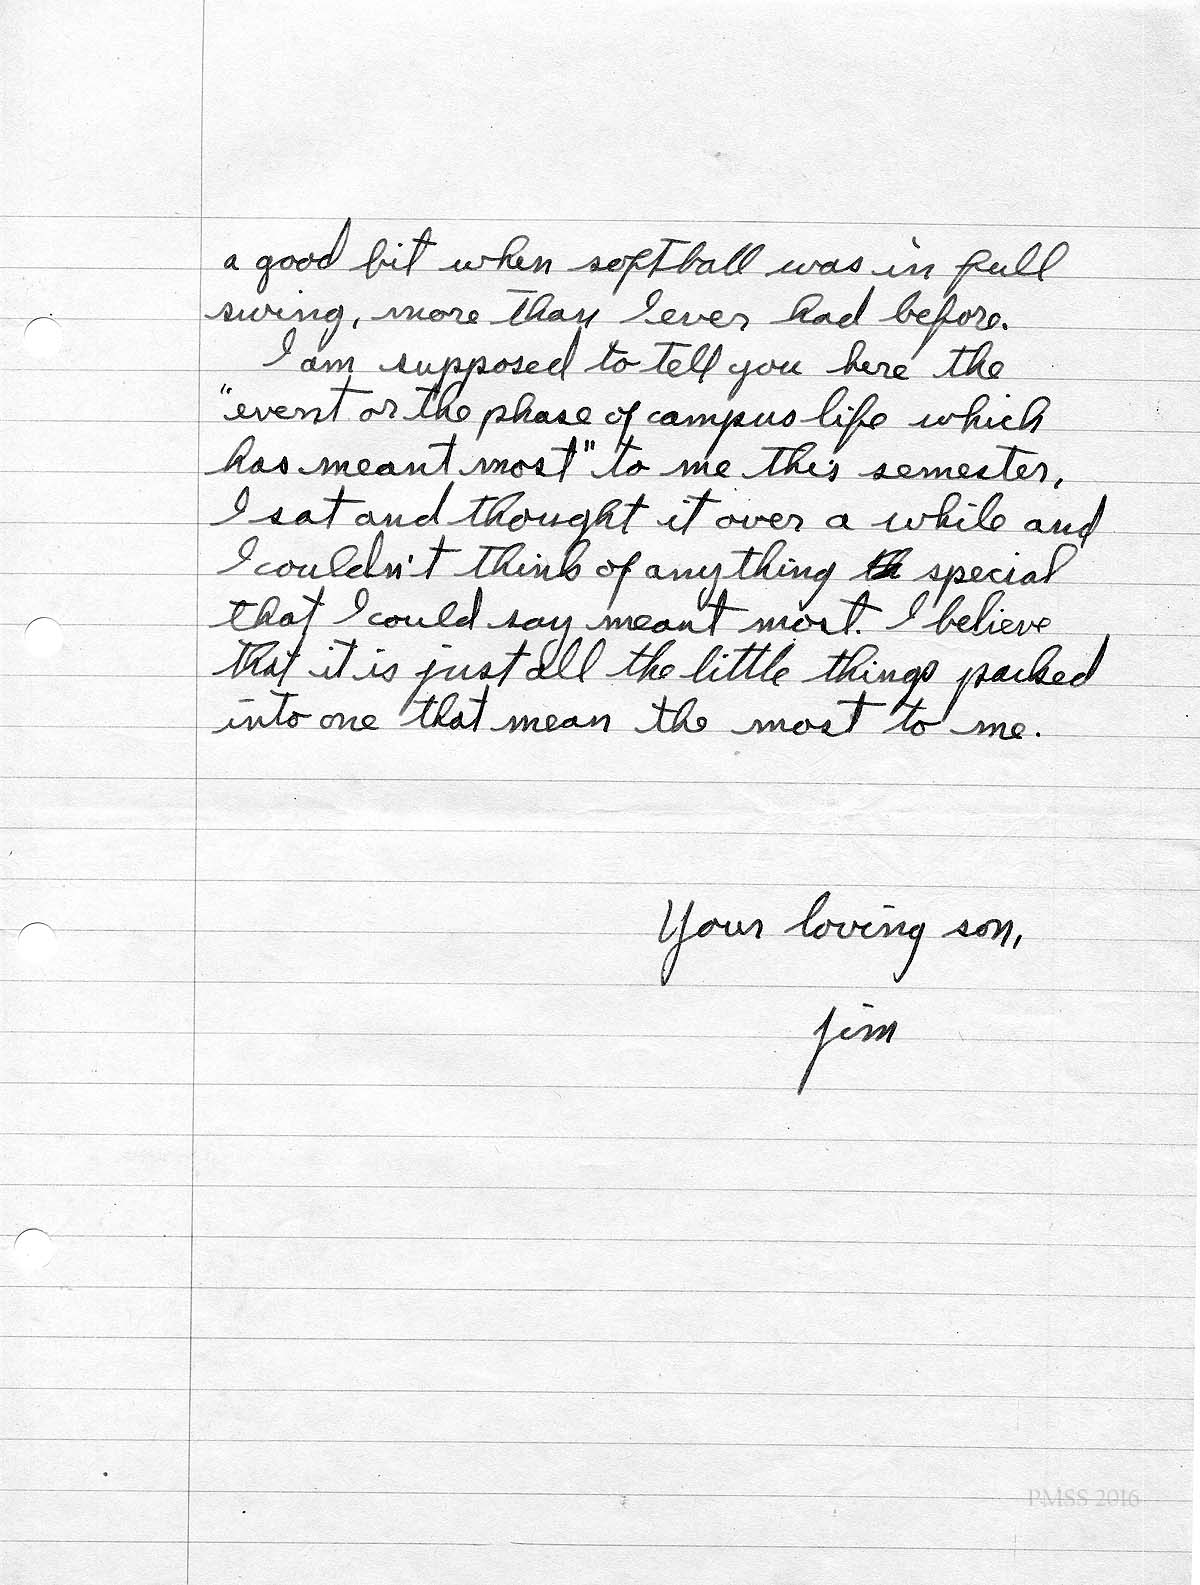 a good bit when softball was in full
swing, more than I ever had before.
I am supposed to tell you here the
"event or the phase of campus life which
has meant most" to me this semester,
I sat and thought it over a while and
I couldn't think of anything th special
that I could say meant most. I believe
that it is just all the little things packed
into one that mean the most to me.
Your loving son,
Jim
PMSS 2016